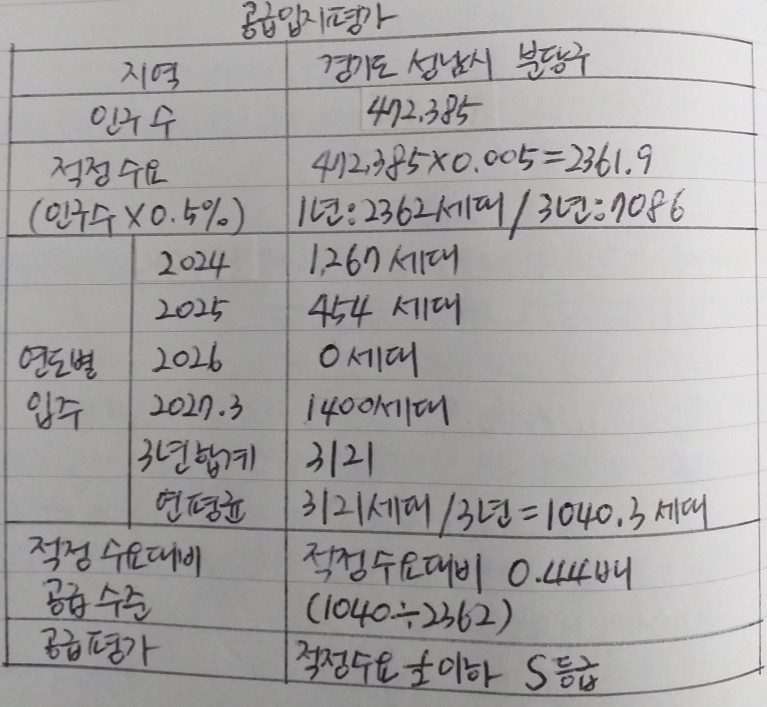 공급입지평가
지역 경기도 성남시 분당구
인구 수 472,385
적정수요 472,385×0.005=2361.9
(인구수×0.5%) 1년:2362세대/3년:7086
2024 1,267세대
2025 454 세대
연도별 2026 0세대
입주 2027.3 1400세대
3년합계 3121
연평균 3121세대/3년=1040.3 세대
적정수요대비 적정수요대비 0.44배
공급수준 (1040÷2362)
공급평가 적정수요 ½이하 S등급